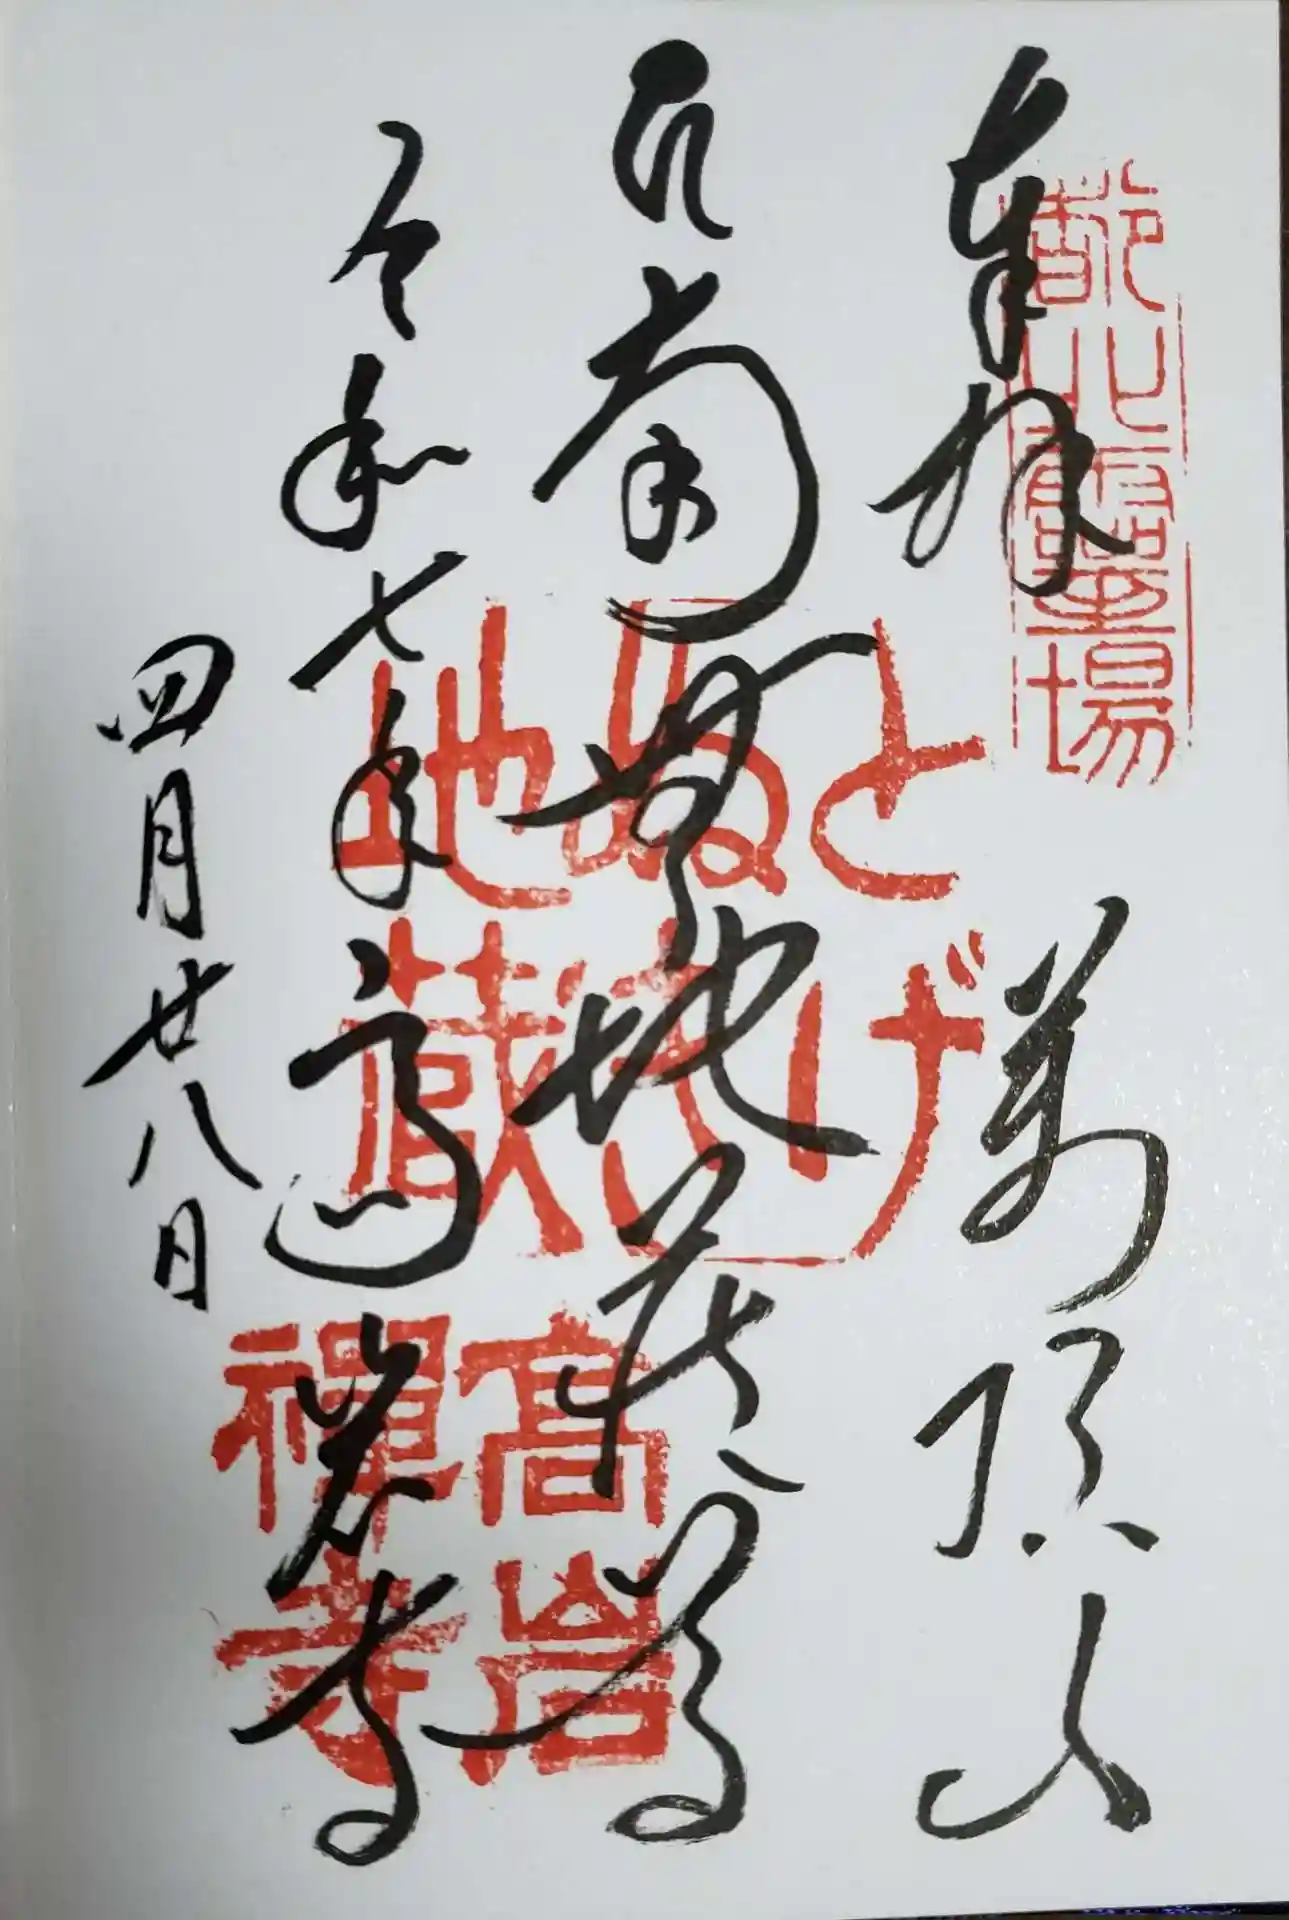 奉拝 萬頂山
南無地蔵尊
令和七年 高岩寺
四月廿八日
とげ
ぬき
地蔵
髙岩
禪寺